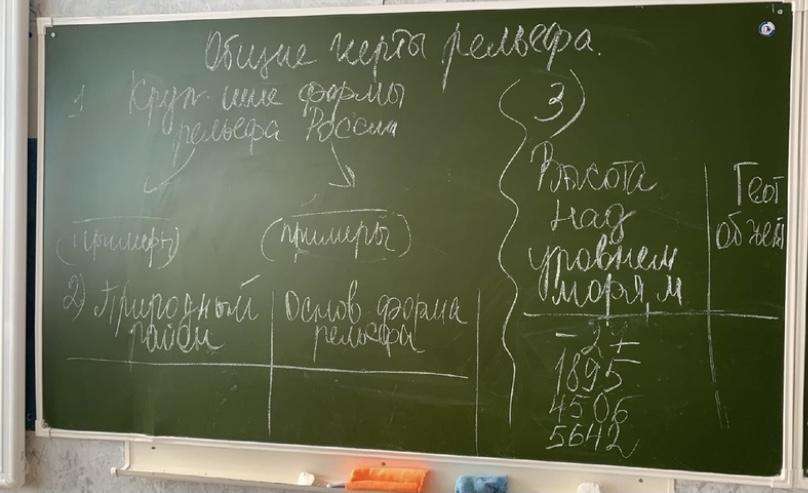 Общие черты рельефа.
1 Круп-шие формы
рельефа России
(примеры) (примеры)
2) Природный район
Основ форма
рельефа
3)
Высота
над
уровнем
моря, м
Геог
объект
-27
1895
4506
5642